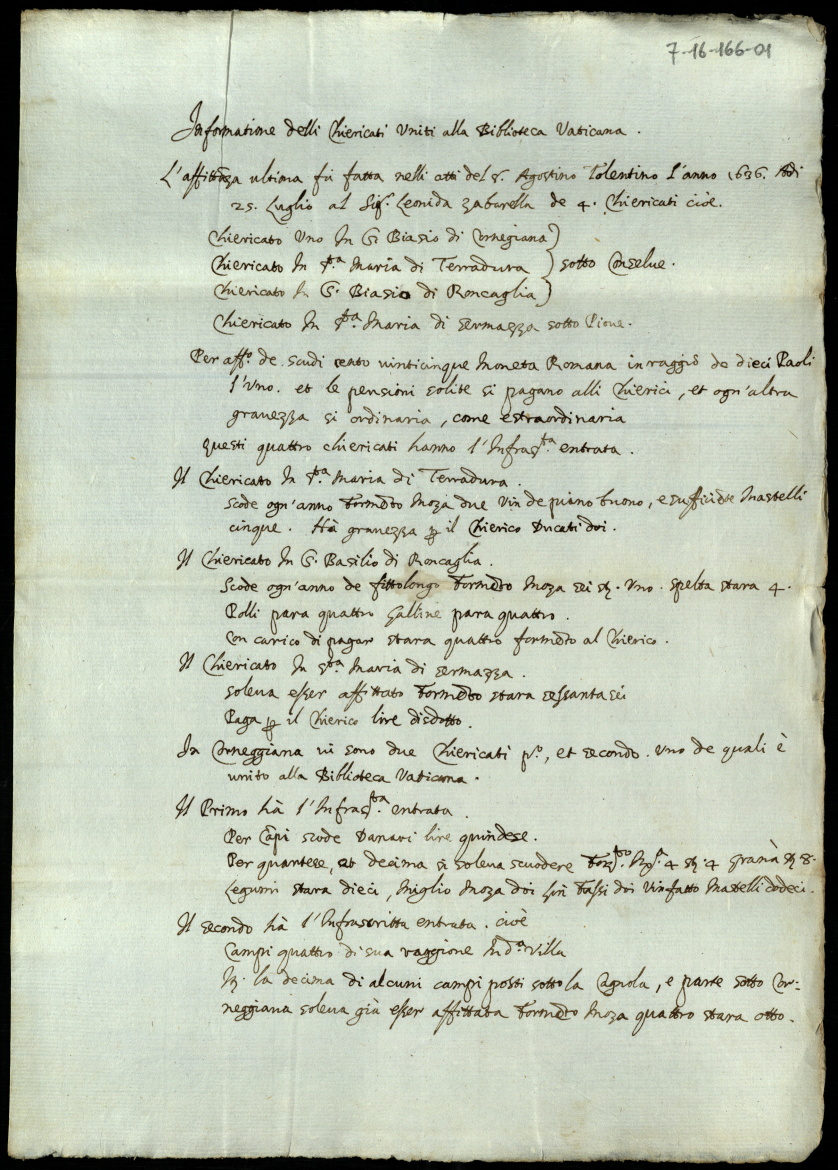 7-16-166-01
Informatione delli Chiericati Uniti alla Biblioteca Vaticana.
L'affittãza ultima fù fatta nelli atti del S. Agostino Tolentino l'anno 1636. Adi
25. Luglio al Sigr. Leonida Zabarella de 4. Chiericati cioè.
Chiericato Uno In S. Biasio di Cornegiana
Chiericato In Sta. Maria di Terradura } sotto Conselue.
Chiericato In S. Biasio di Roncaglia
Chiericato In Sta. Maria di Sermazza sotto Pioue.
Per affo. de scudi cento uinticinque Moneta Romana in raggiò de dieci Paoli
l'uno. et le pensioni solite si pagano alli Chierici, et ogn'altra
grauezza si ordinaria, come estraordinaria
Questi quattro chiericati hanno l'Infrasta. entrata.
Il Chiericato In Sta. Maria di Terradura.
Scode ogn'anno formẽto Moza due Vin de piano buono, e sufficiẽte Mastelli
cinque. Hà grauezza p il Chierico Ducati doi.
Il Chiericato In S. Basilio di Roncaglia.
Scode ogn'anno de fitto longo formẽto Moza sei st. Uno. Spelta stara 4.
Polli para quattro Galline para quattro.
Con carico di pagar stara quattro formẽto al Chierico.
Il Chiericato In Sta. Maria di Sermazza.
Soleua esser affittato formẽto stara sessanta sei
Paga p il Chierico lire disdotto.
In Corneggiana ui sono due Chiericati po., et secondo. Uno de quali è
unito alla Biblioteca Vaticana.
Il Primo hà l'Infrasta. entrata.
Per Cãpi scode Danari lire quindese.
Per quartese, et decima si soleua scuodere forto. Mza. 4 st. 4 Grana st 8.
Legumi stara dieci, Miglio Moza doi lin fassi doi Vin fatto Mastelli dodeci.
Il secondo hà l'Infrascritta entrata. cioè
Campi quattro di sua raggione In da. Villa
It. la decima di alcuni campi posti sotto la Cagnola, e parte sotto Cor=
neggiana soleua già esser affittata formẽto Moza quattro stara otto.